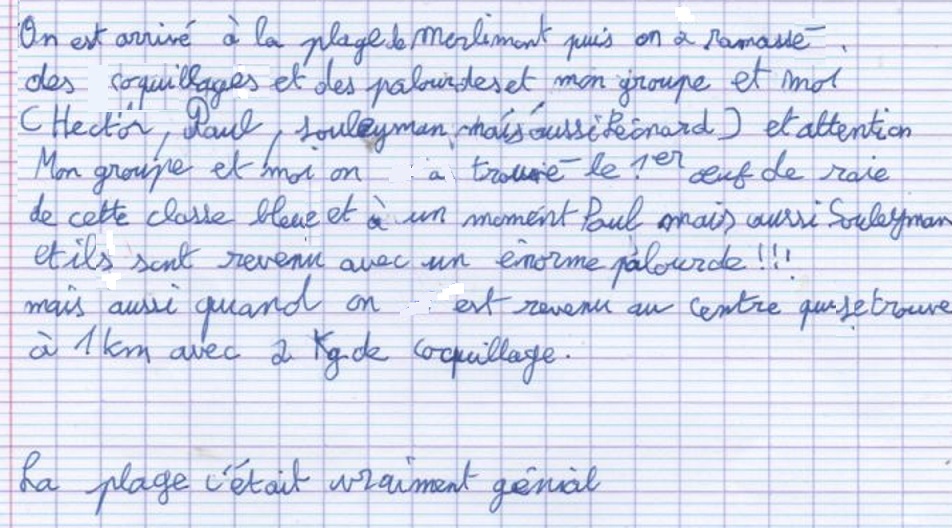 On est arrivé à la plage de Merlimont puis on a ramassé.
des coquillages et des palourdes et mon groupe et moi
(Hector, Paul, souleyman, mais aussi Léonard) et attention
Mon groupe et moi on a trouvé le 1er œuf de raie
de cette classe bleue et à un moment Paul mais aussi Souleyman
et ils sont revenu avec un énorme palourde !!!
mais aussi quand on est revenu au centre qui se trouve
à 1 km avec 2 Kg de coquillage.
La plage c'était vraiment génial